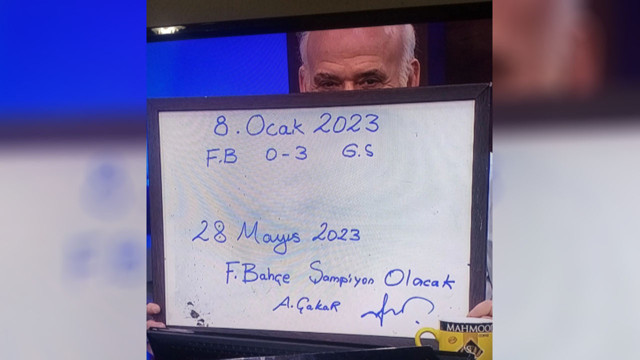 8. Ocak 2023
F.B 0-3 G.S
28 Mayıs 2023
F.Bahçe Şampiyon Olacak
A.Çakar
MAHMOOD